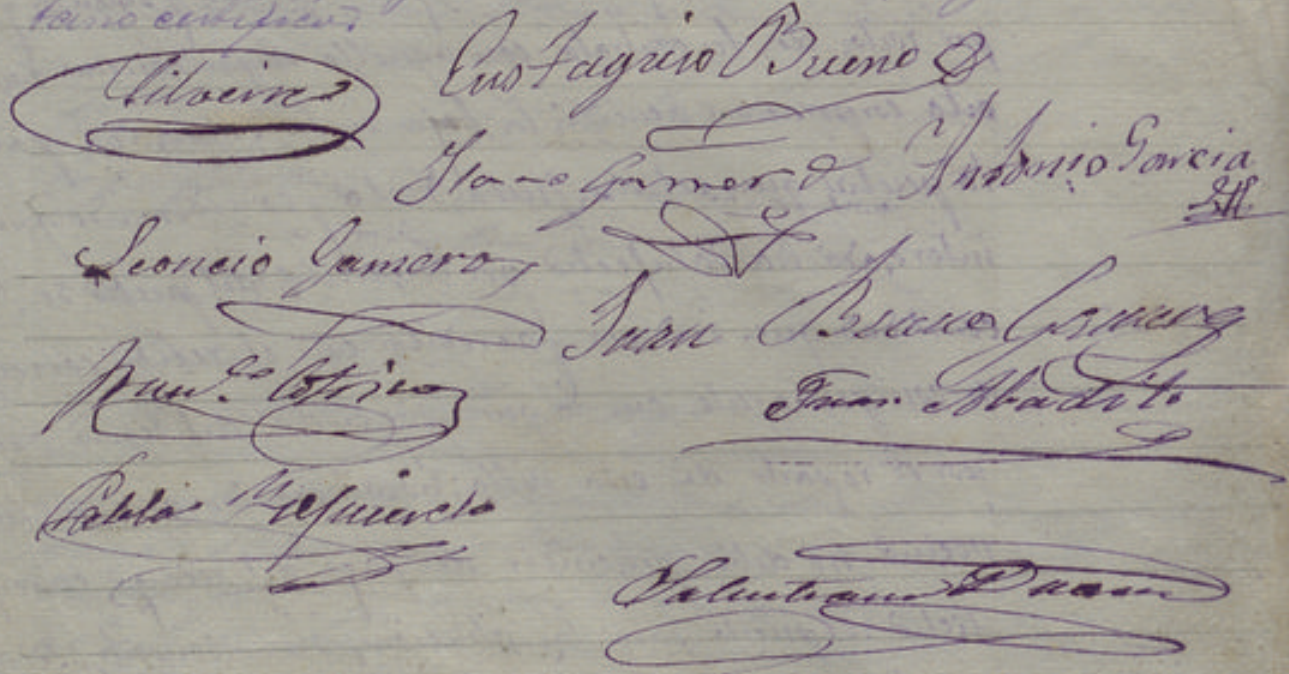 tario certifico.
Silveira
Eustaquio Bueno
Gamero Antonio Garcia
Leoncio Gamero
Juan Bueno Gamero
Cotrina
Juan Abadito
Pablo Izquierdo
Salustiano Duran